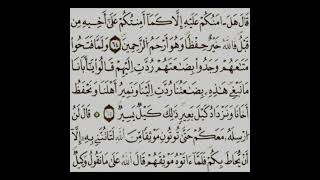 قَالَ هَلْ ءَامَنُكُمْ عَلَيْهِ إِلَّا كَمَآ أَمِنتُكُمْ عَلَىٰٓ أَخِيهِ مِن
قَبْلُ فَٱللَّهُ خَيْرٌ حَٰفِظًا وَهُوَ أَرْحَمُ ٱلرَّٰحِمِينَ ٦٤ وَلَمَّا فَتَحُوا۟
مَتَٰعَهُمْ وَجَدُوا۟ بِضَٰعَتَهُمْ رُدَّتْ إِلَيْهِمْ قَالُوا۟ يَٰٓأَبَانَا
مَا نَبْغِى هَٰذِهِۦ بِضَٰعَتُنَا رُدَّتْ إِلَيْنَا وَنَمِيرُ أَهْلَنَا وَنَحْفَظُ
أَخَانَا وَنَزْدَادُ كَيْلَ بَعِيرٍ ذَٰلِكَ كَيْلٌ يَسِيرٌ ٦٥ قَالَ لَنْ
أُرْسِلَهُۥ مَعَكُمْ حَتَّىٰ تُؤْتُونِ مَوْثِقًا مِّنَ ٱللَّهِ لَتَأْتُنَّنِى بِهِۦٓ إِلَّآ
أَن يُحَاطَ بِكُمْ فَلَمَّآ ءَاتَوْهُ مَوْثِقَهُمْ قَالَ ٱللَّهُ عَلَىٰ مَا نَقُولُ وَكِيلٌ